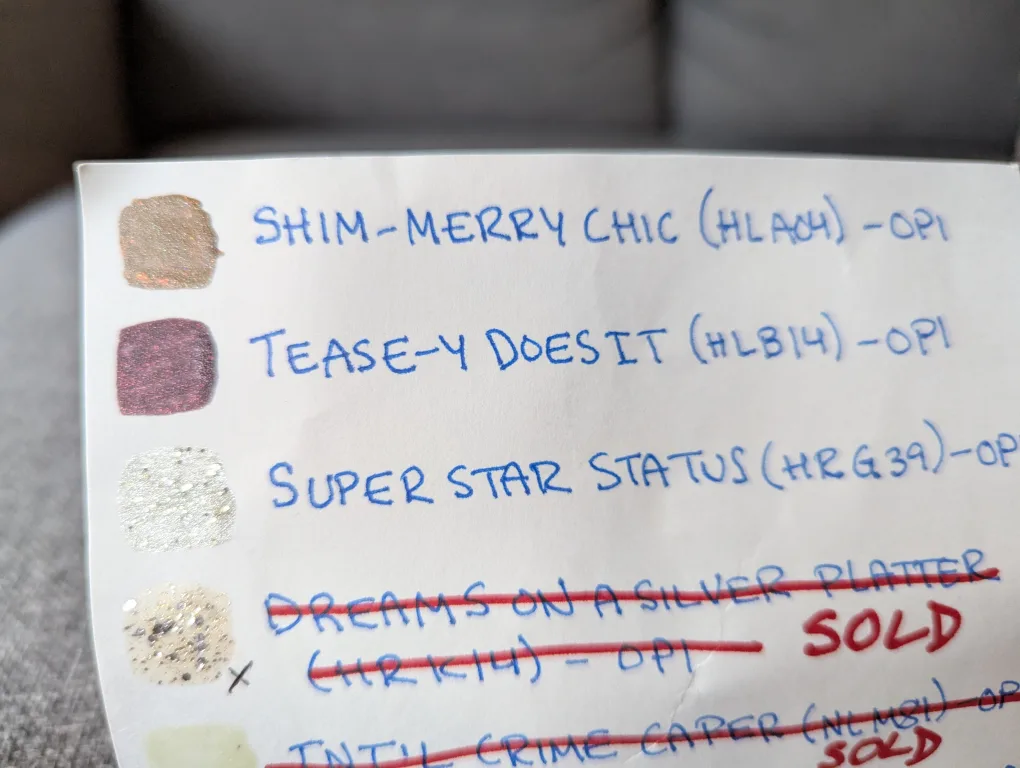 SHIM-MERRY CHIC (HLA04) - OPI
TEASE-Y DOES IT (HLB14) - OPI
SUPER STAR STATUS (HRG39) - OP
DREAMS ON A SILVER PLATTER
(HRK14) - OPI SOLD
X
INT'L CRIME CAPER (NLM81) - OP
SOLD